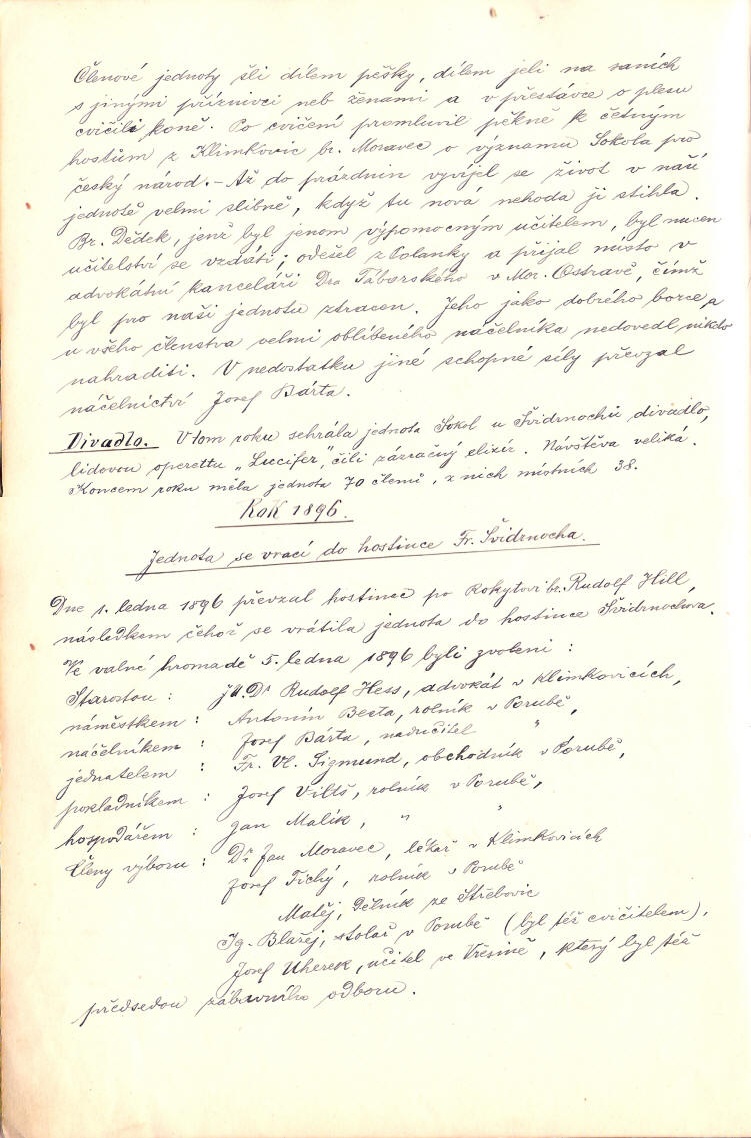 Členové jednoty šli dílem pěšky, dílem jeli na saních
s jinými příznivci neb ženami a v přestávce o plesu
cvičili koně. Po cvičení promluvil pěkně k četným
hostům z Klimkovic br. Moravec o významu Sokola pro
český národ. – Až do prázdnin vyvíjel se život v naší
jednotě velmi slibně, když tu nová nehoda ji stihla.
Br. Dědek, jenž byl jenom výpomocným učitelem, byl nucen
učitelství se vzdáti; odešel z Polanky a přijal místo v
advokátní kanceláři Dra Táborského v Mor. Ostravě, čímž
byl pro naši jednotu ztracen. Jeho jako dobrého borce a
u všeho členstva velmi oblíbeného náčelníka nedovedl nikdo
nahraditi. V nedostatku jiné schopné síly převzal
náčelnictví Josef Bárta.
Divadlo. V tom roku sehrála jednota Sokol u Švidrnochů divadlo,
lidovou operettu „Luccifer", čili zázračný elixír. Návštěva veliká.
Koncem roku měla jednota 70 členů, z nich místních 38.
Rok 1896.
Jednota se vrací do hostince Fr. Švidrnocha.
Dne 1. ledna 1896 převzal hostinec po Rokytovi br. Rudolf Hill,
následkem čehož se vrátila jednota do hostince Švidrnochova.
Ve valné hromadě 5. ledna 1896 byli zvoleni:
Starostou: JU. Dr Rudolf Hess, advokát v Klimkovicích,
náměstkem: Antonín Besta, rolník v Porubě,
náčelníkem: Josef Bárta, nadučitel "
jednatelem: Fr. Vl. Sigmund, obchodník v Porubě,
pokladníkem: Josef Viltš, rolník v Porubě,
hospodářem: Jan Malík, " "
Členy výboru: Dr Jan Moravec, lékař v Klimkovicích
Josef Tichý, rolník v Porubě
Matěj, dělník ze Střebovic
Ig. Blažej, stolař v Porubě (byl též cvičitelem),
Josef Uherek, učitel ve Vřesině, který byl též
předsedou zábavního odboru.